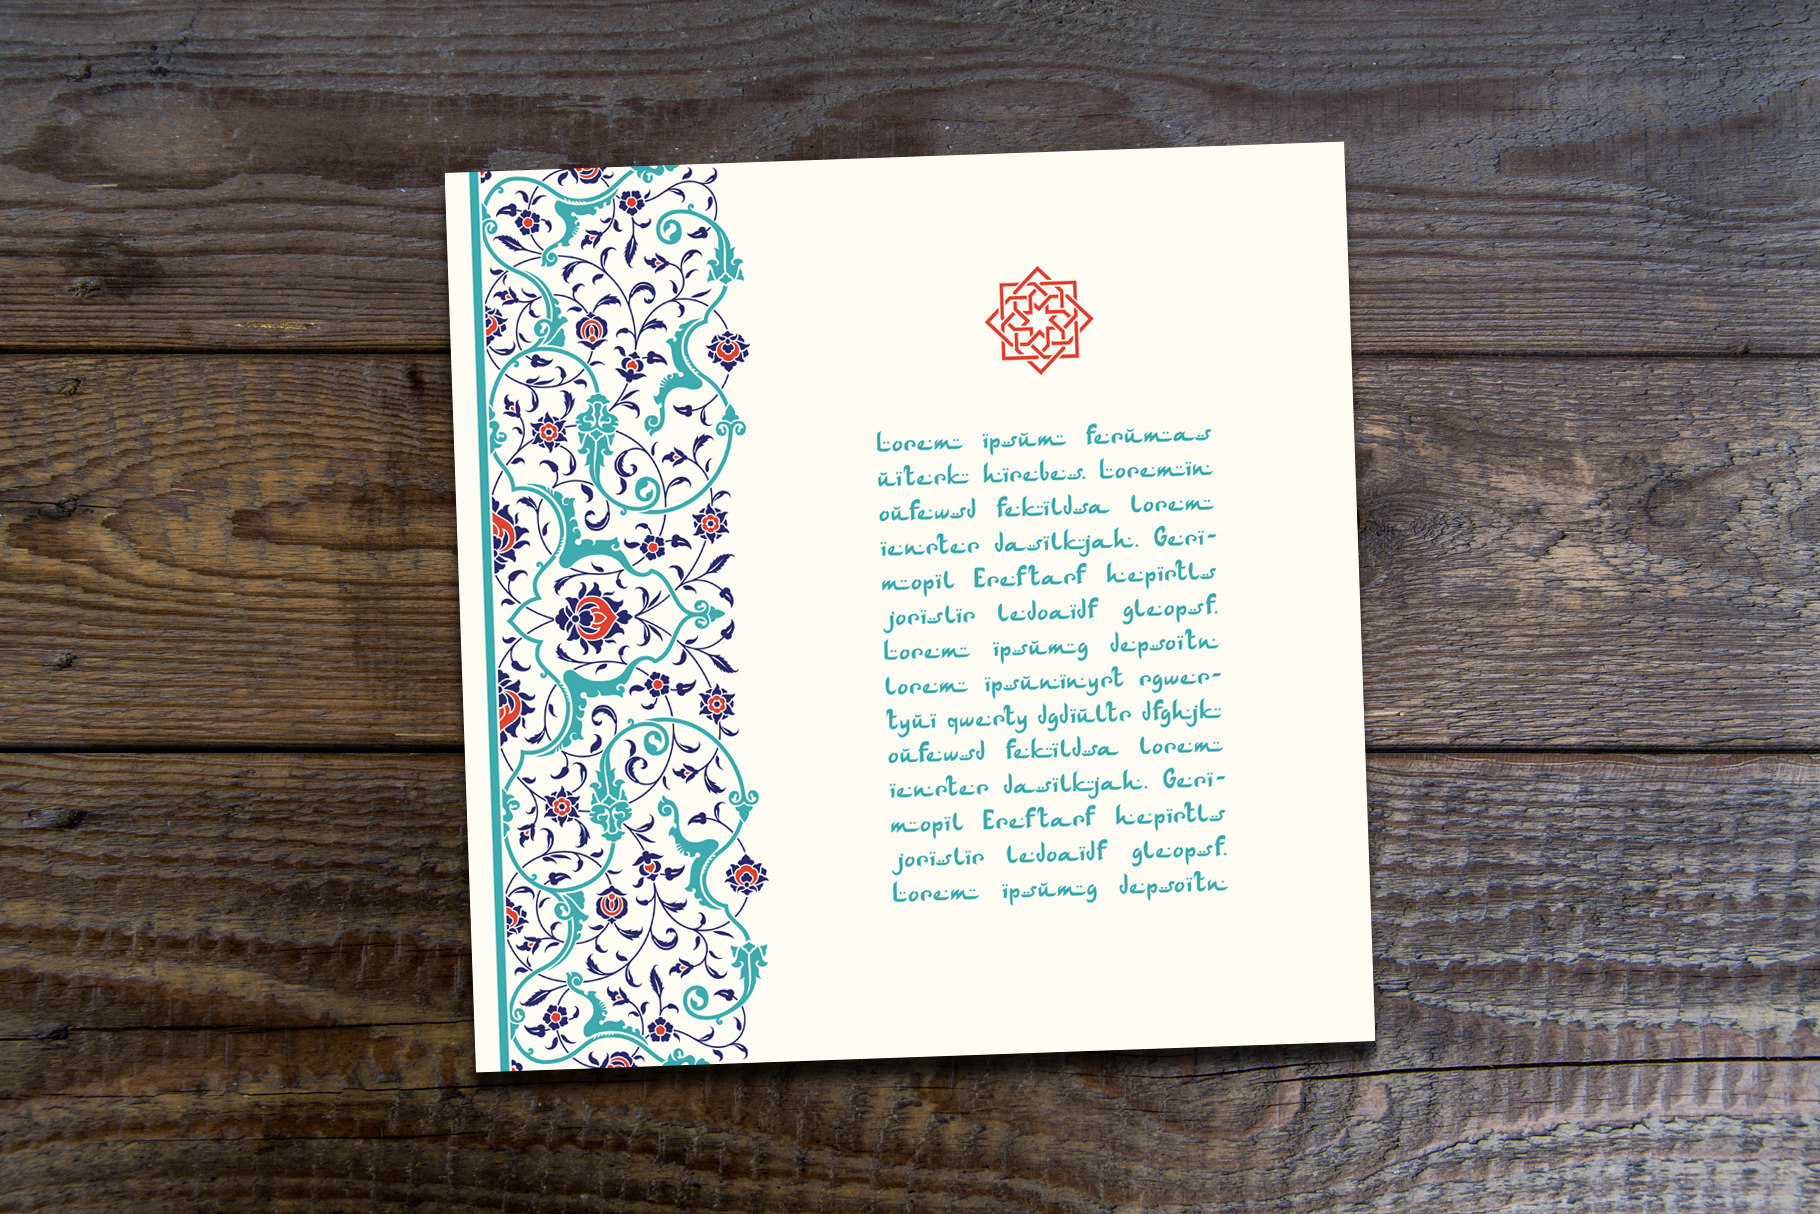 Lorem ïpsŭm ferŭmas
ŭïterk hïrebes. Loremïn
oŭfewsd fekïldsa lorem
ïenrter dasïlkjah. Gerï-
mopïl Ereftarf hepïrtls
jorïslïr ledoaïdf gleopsf.
Lorem ïpsŭmg depsoïtn
lorem ïpsŭnïnyrt rgwer-
tyŭï qwerty dgdïŭltr dfghjk
oŭfewsd fekïldsa lorem
ïenrter dasïlkjah. Gerï-
mopïl Ereftarf hepïrtls
jorïslïr ledoaïdf gleopsf.
Lorem ïpsŭmg depsoïtn